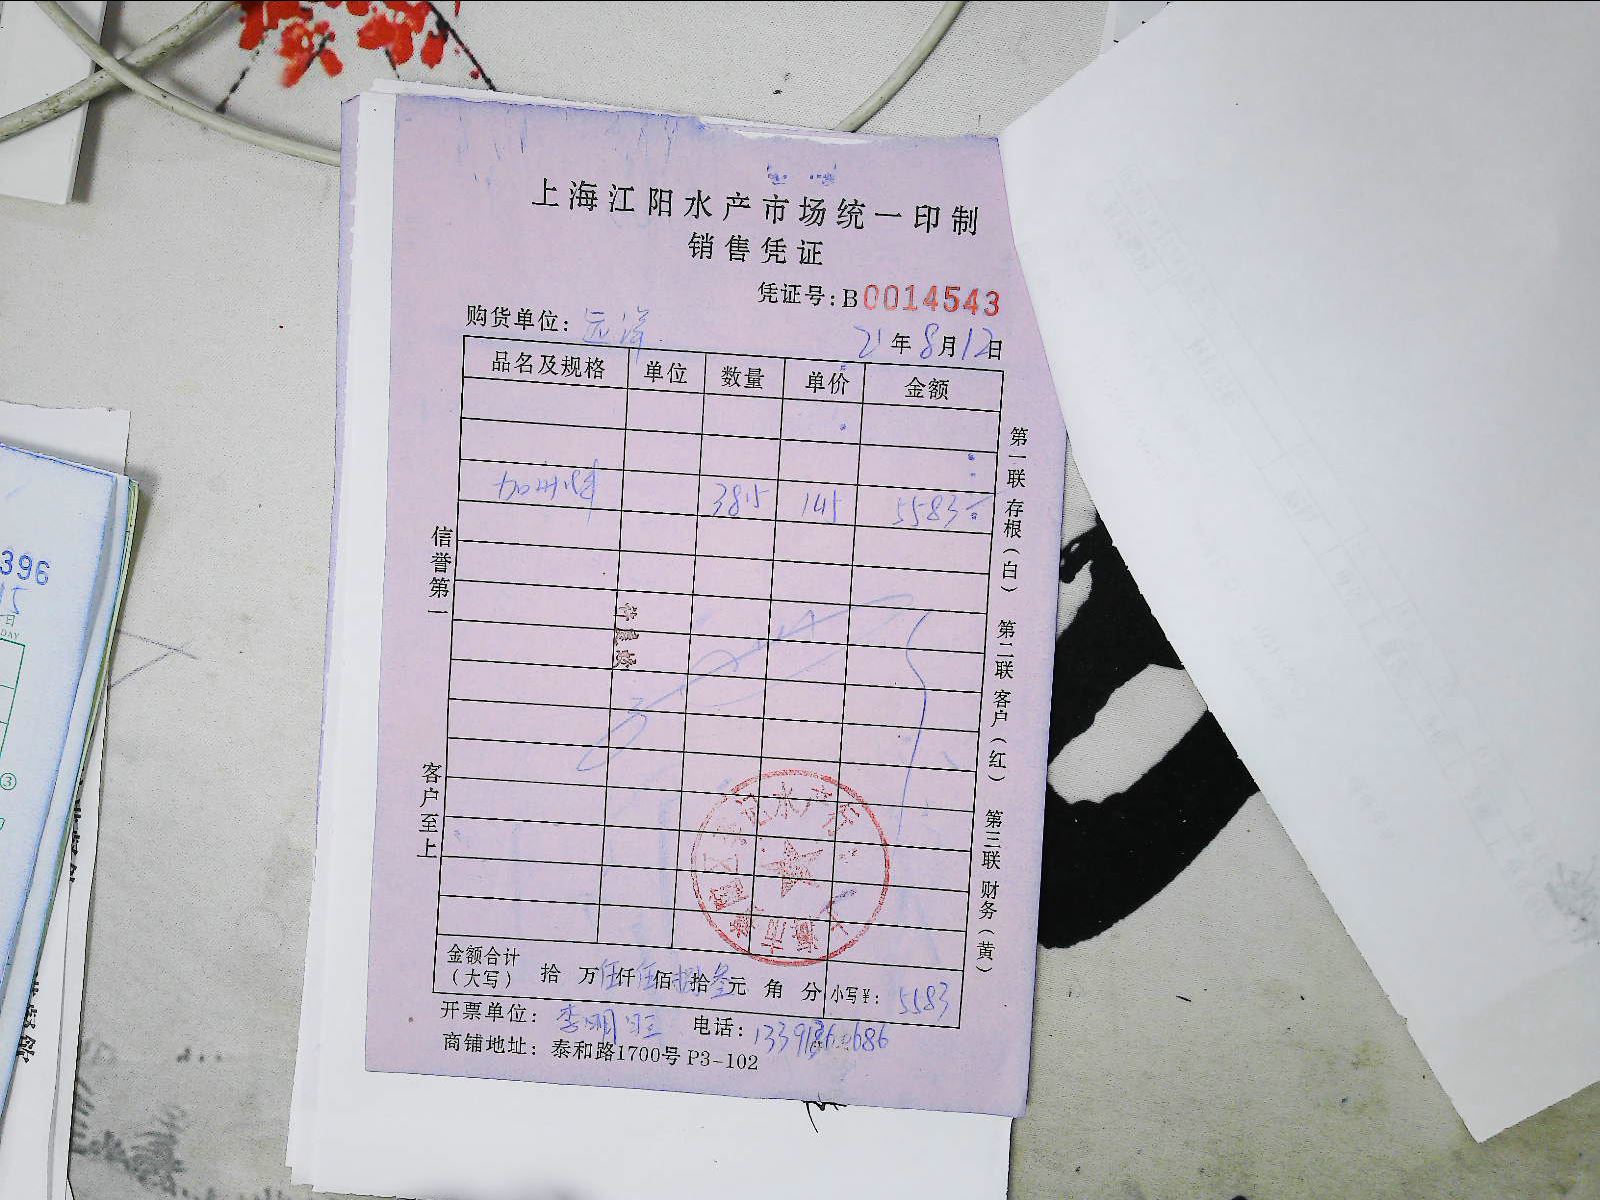 上海江阳水产市场统一印制
销售凭证
凭证号:B0014543
购货单位: 远洋
21年8月12日
品名及规格 单位 数量 单价 金额
加州鲈 3815 145 5583
信誉第一
客户至上
第一联 存根(白)
第二联 客户(红)
第三联 财务(黄)
金额合计
(大写) 拾 万伍仟伍佰捌拾叁元 角 分 小写¥: 5583
开票单位: 李明旺 电话:
商铺地址: 泰和路1700号 P3-102
396
15
日
DAY
③